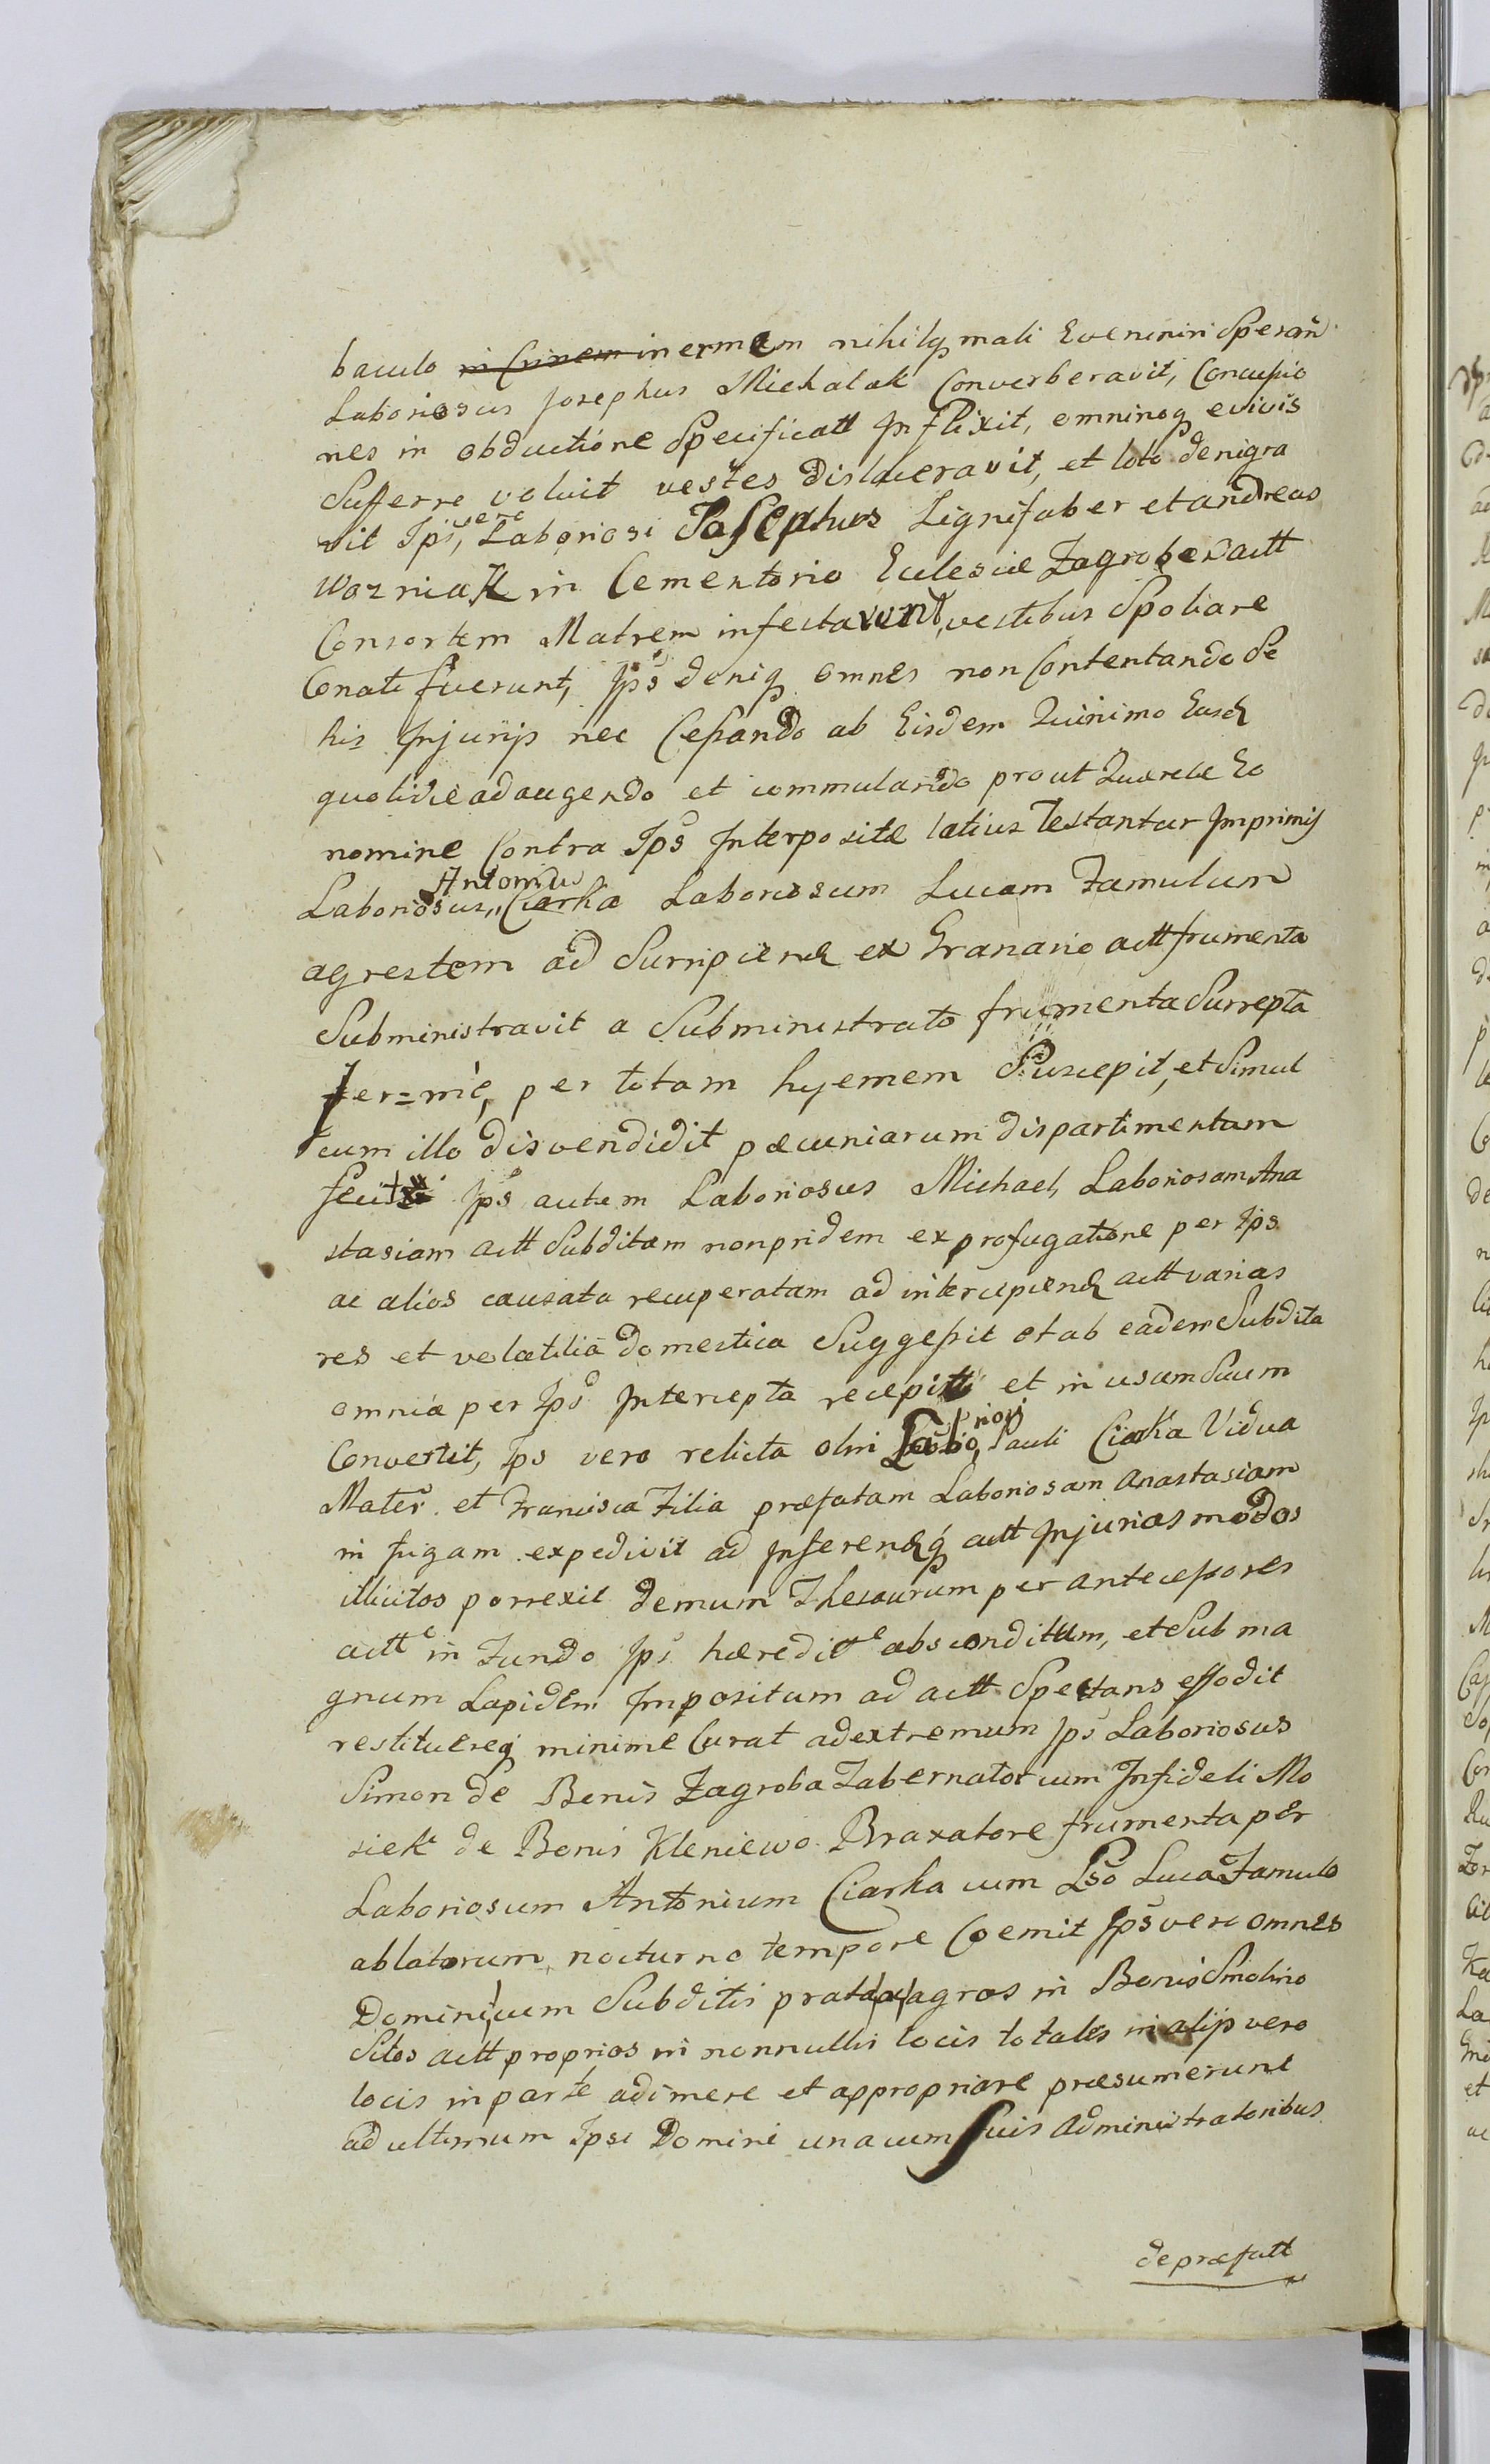 baculo in Crinem inermem nihilq mali Evenniri Speran
Laboriosus Josephus Michalak Converberavit, Concussio
nes in obductione Specificatt Inflixit, omninoq evivis
Sufferre voluit vestes Dislaceravit, et loto denigra
vit Ips, vero Laboriosi Josephus Lignifaber et andreas
Wozniak in Cementorio Eclesiae Zagroben actt
Consortem Matrem infestarunt, vestibus Spoliare
Conati fuerunt, Ips deniq omnes non Contentando de
his Injurijs nec Cessando ab Eisdem Quinimo Easd
quotidie adaugendo et commulando prout Querelae Eo
nomine Contra Ips Interpositae latius Testantur Imprimis
Laboriosus, Antonius Ciarka Laboriosum Lucam Famulum
agrestem ad Surripiend ex Granario actt frumenta
Subministravit a Subministrato frumenta Surrepta
per totam hyemem Suscepit, et Simul
cum illo disvendidit paecuniarum dispartimentum
fecit Ips autem Laboriosus Michael, Laboriosam Ana
stasiam actt Subditam nonpridem ex profugatione per Ips
ac alios causata recuperatam ad intercipiend actt varias
res et velatilia domestica Suggessit et ab eadem Subdita
omnia per Ips Intercepta recepit et in usum Suum
Convertit, Ips vero relicta olim Laboriosi Pauli Ciarka Vidua
Mater et Francisca Filia praefatam Laboriosam Anastasiam
in fugam expedivit ad Inferendq actt Injurias modos
illicitos porrexit demum Thesaurum per antecessores
actt in Fundo Ips haeredit absconditum, et Sub ma
gnum Lapidem Impositum ad actt Spectans effodit
restituereq minime Curat adextremum Ips Laboriosus
Simon de Bonis Zagroba Tabernator cum Infideli Mo
siek de Bonis Kleniewo Braxatore frumenta per
Laboriosum Antonium Ciarka cum Lso Luca Famulo
ablatorum nocturno tempore Coemit Ips vero omnes
Domini cum Subditis prata agros in Bonis Smolino
Sitos actt proprios in nonnullis locis totales in alijs vero
locis in parte adimere et appropriare praesumerunt
ad ultimum Ipsi Domini unacum Suis Administratoribus
de praefatt